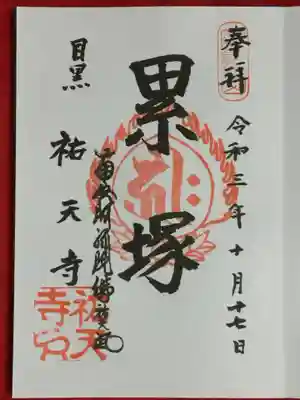 奉拝
令和三年十月十七日
累塚
目黒
祐天寺
祐天寺印